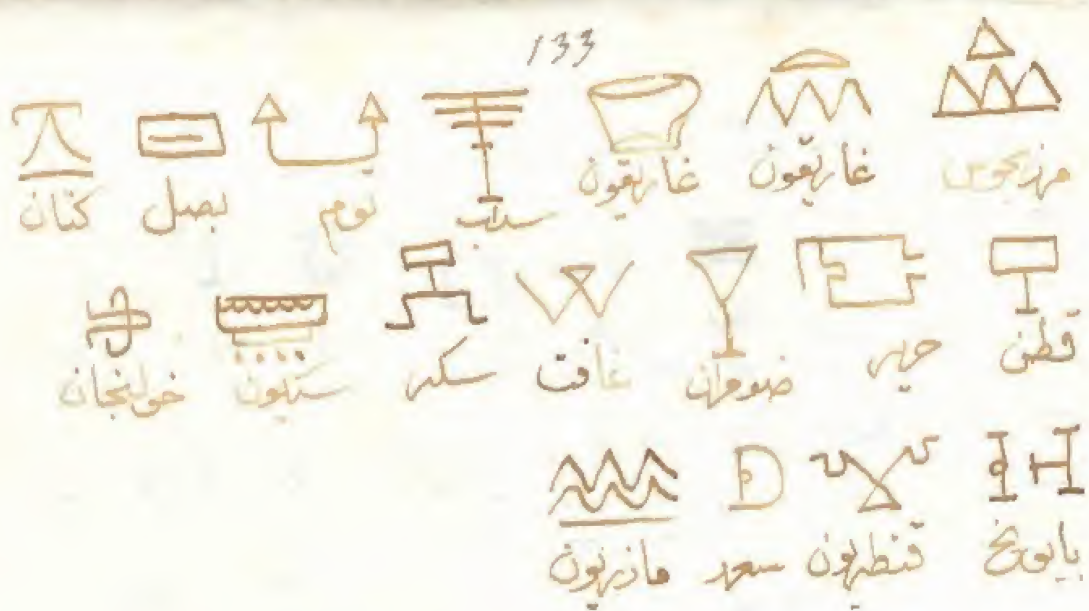 133
مرزنجوس غاريقون غاريقون سداب توم بصل كتان
قطن حرير ضومران غافت سكر خولنجان
بابونج قنطريون سعد مازريون